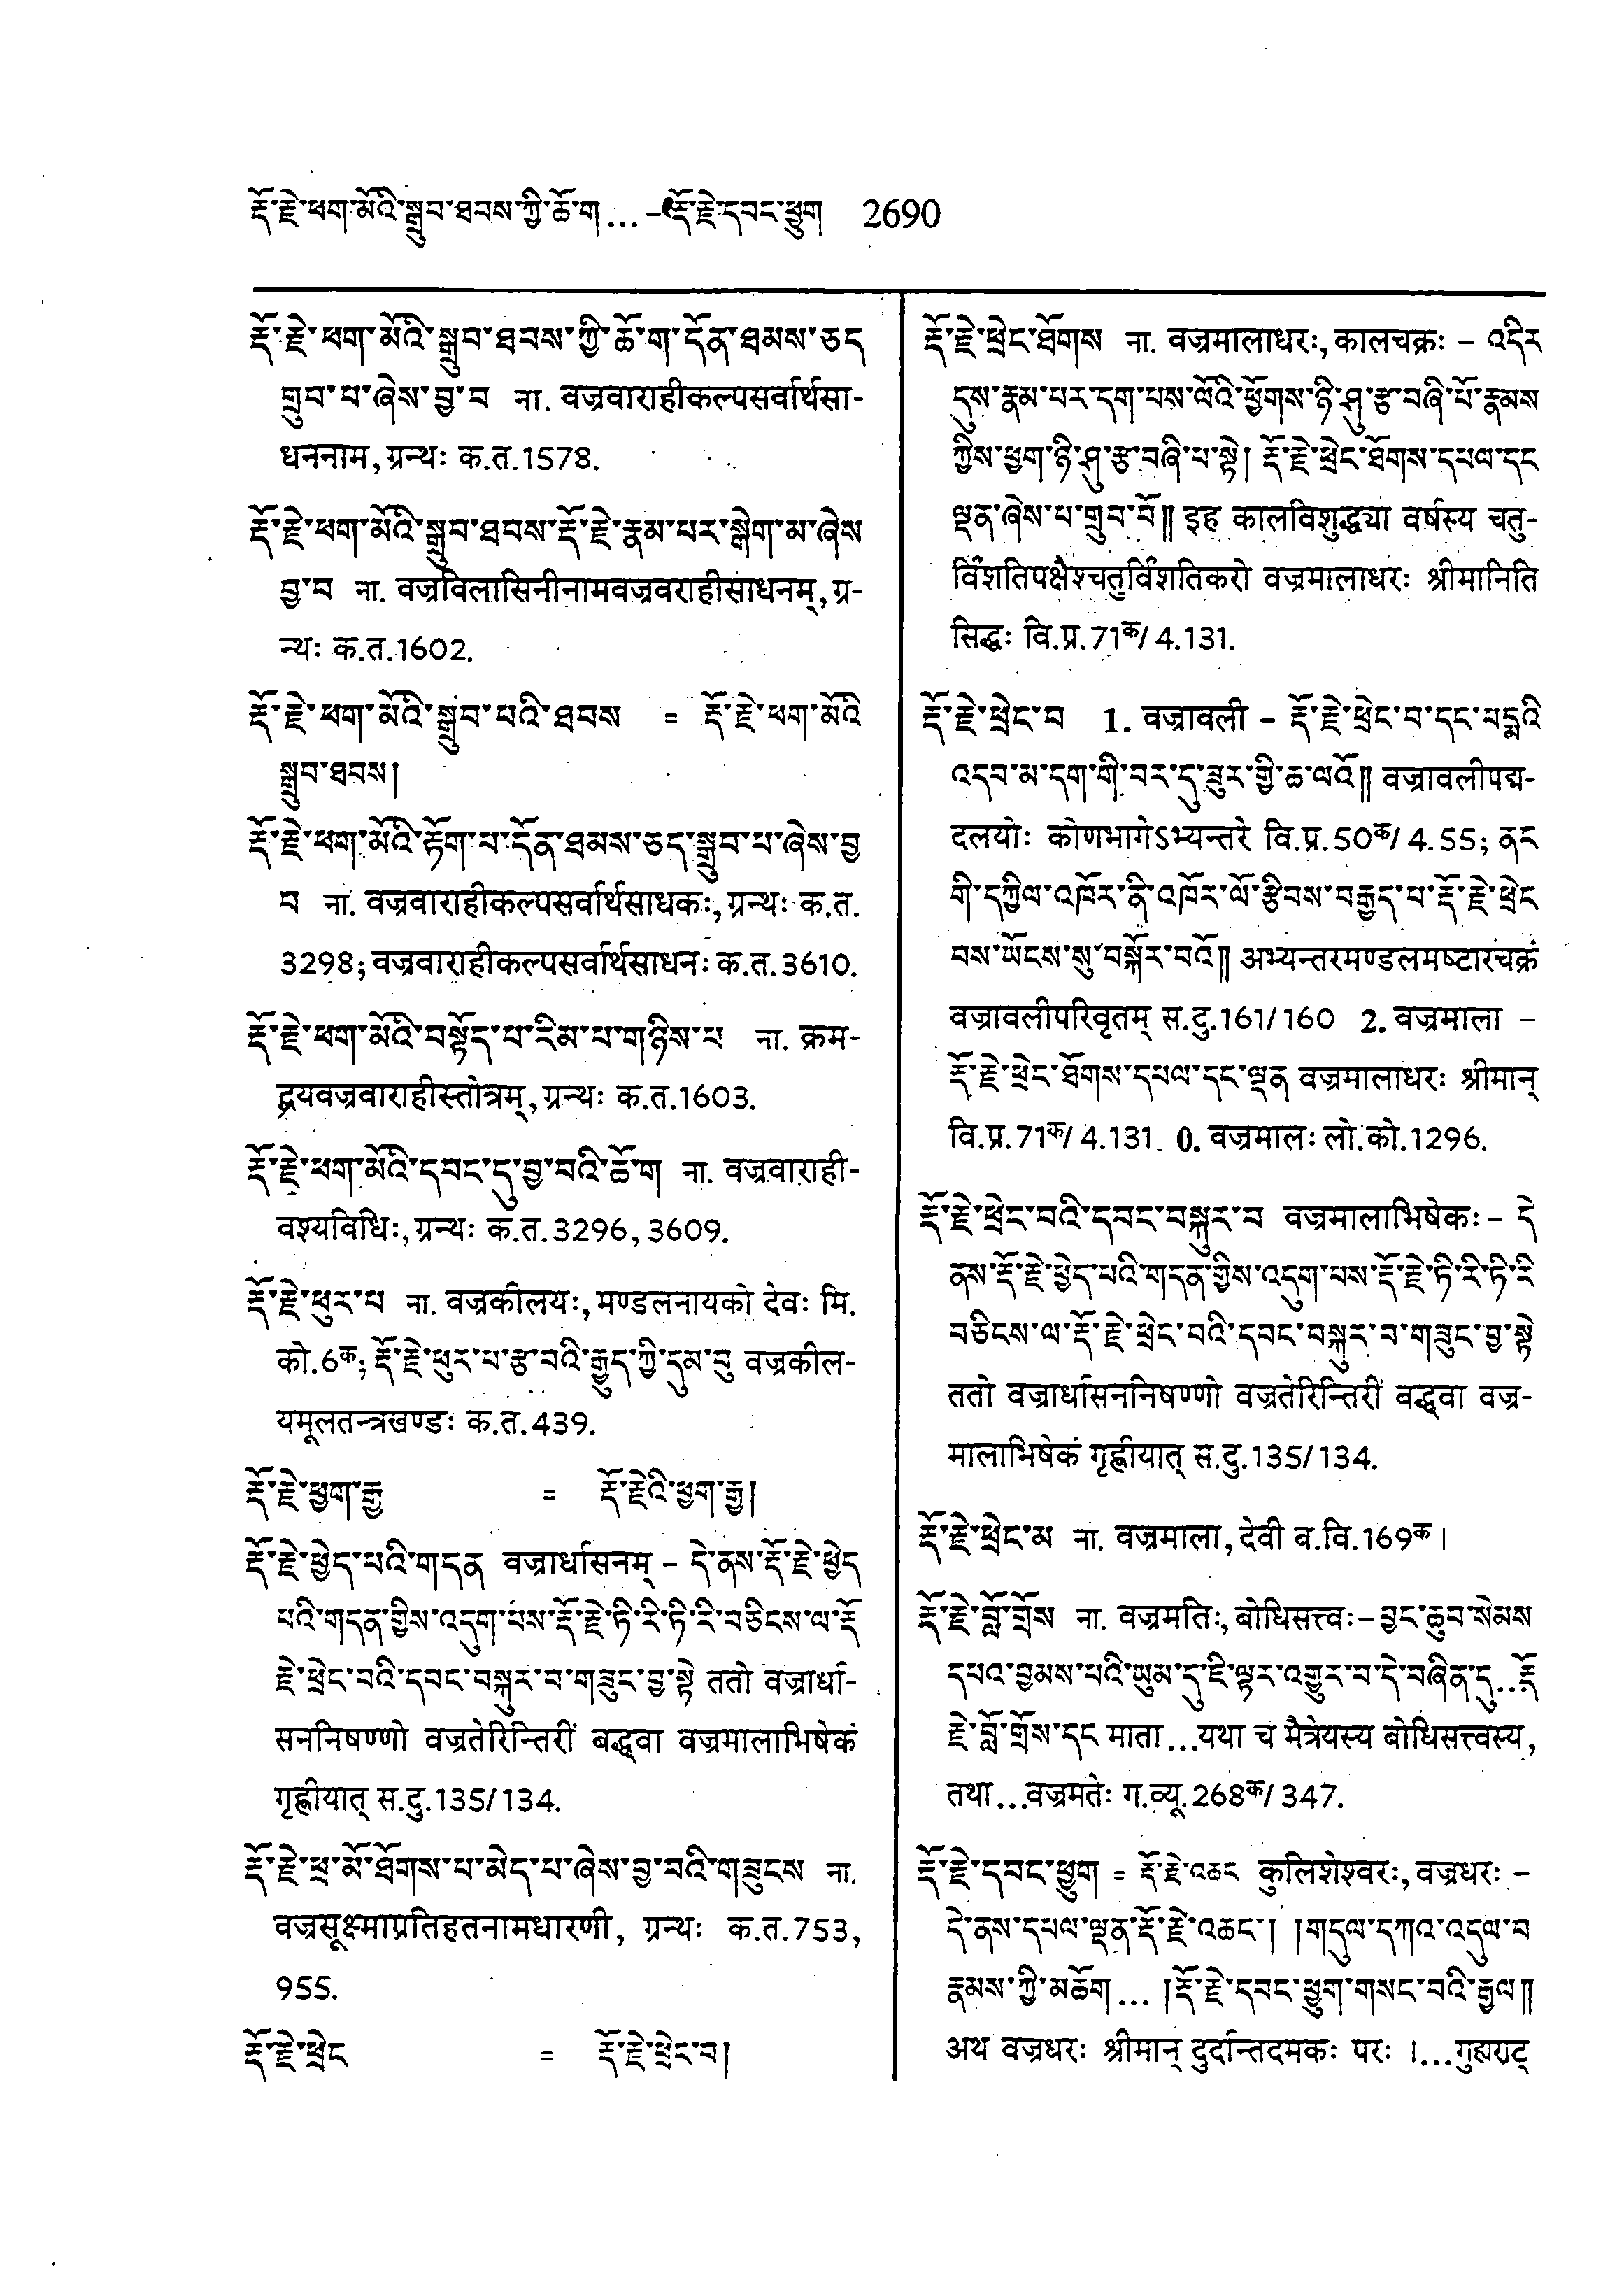 རྡོ་རྗེ་ཕག་མོའི་སྒྲུབ་ཐབས་ཀྱི་ཆོ་ག...–རྡོ་རྗེ་དབང་ཕྱུག 2690
རྡོ་རྗེ་ཕག་མོའི་སྒྲུབ་ཐབས་ཀྱི་ཆོ་ག་དོན་ཐམས་ཅད
གྲུབ་པ་ཞེས་བྱ་བ ना. वज्रवाराहीकल्पसर्वार्थसा-
धननाम, ग्रन्थः क.त.1578.
རྡོ་རྗེ་ཕག་མོའི་སྒྲུབ་ཐབས་རྡོ་རྗེ་རྣམ་པར་སྒེག་མ་ཞེས
བྱ་བ ना. वज्रविलासिनीनामवज्रवराहीसाधनम्, ग्र-
न्थः क.त.1602.
རྡོ་རྗེ་ཕག་མོའི་སྒྲུབ་པའི་ཐབས = རྡོ་རྗེ་ཕག་མོའི
སྒྲུབ་ཐབས།
རྡོ་རྗེ་ཕག་མོའི་རྟོག་པ་དོན་ཐམས་ཅད་སྒྲུབ་པ་ཞེས་བྱ
བ ना. वज्रवाराहीकल्पसर्वार्थसाधकः, ग्रन्थः क.त.
3298; वज्रवाराहीकल्पसर्वार्थसाधनः क.त.3610.
རྡོ་རྗེ་ཕག་མོའི་བསྟོད་པ་རིམ་པ་གཉིས་པ ना. क्रम-
द्वयवज्रवाराहीस्तोत्रम्, ग्रन्थः क.त.1603.
རྡོ་རྗེ་ཕག་མོའི་དབང་དུ་བྱ་བའི་ཆོ་ག ना. वज्रवाराही-
वश्यविधिः, ग्रन्थः क.त.3296, 3609.
རྡོ་རྗེ་ཕུར་པ ना. वज्रकीलयः, मण्डलनायको देवः मि.
को.6क; རྡོ་རྗེ་ཕུར་པ་རྩ་བའི་རྒྱུད་ཀྱི་དུམ་བུ वज्रकील-
यमूलतन्त्रखण्डः क.त.439.
རྡོ་རྗེ་ཕྱག་རྒྱ = རྡོ་རྗེའི་ཕྱག་རྒྱ།
རྡོ་རྗེ་ཕྱེད་པའི་གདན वज्रार्धासनम् – དེ་ནས་རྡོ་རྗེ་ཕྱེད
པའི་གདན་གྱིས་འདུག་པས་རྡོ་རྗེ་ཏི་རི་ཏི་རི་བཅིངས་ལ་རྡོ
རྗེ་ཕྲེང་བའི་དབང་བསྐུར་བ་གཟུང་བྱ་སྟེ ततो वज्रार्धा-
सननिषण्णो वज्रतेरिन्तिरीं बद्ध्वा वज्रमालाभिषेकं
गृह्णीयात् स.दु.135/134.
རྡོ་རྗེ་ཕྲ་མོ་ཐོགས་པ་མེད་པ་ཞེས་བྱ་བའི་གཟུངས ना.
वज्रसूक्ष्माप्रतिहतनामधारणी, ग्रन्थः क.त.753,
955.
རྡོ་རྗེ་ཕྲེང = རྡོ་རྗེ་ཕྲེང་བ།
རྡོ་རྗེ་ཕྲེང་ཐོགས ना. वज्रमालाधरः, कालचक्रः – འདིར
དུས་རྣམ་པར་དག་པས་ལོའི་ཕྱོགས་ཉི་ཤུ་རྩ་བཞི་པོ་རྣམས
ཀྱིས་ཕྱག་ཉི་ཤུ་རྩ་བཞི་པ་སྟེ། རྡོ་རྗེ་ཕྲེང་ཐོགས་དཔལ་དང
ལྡན་ཞེས་པ་གྲུབ་བོ༎ इह कालविशुद्ध्या वर्षस्य चतु-
र्विंशतिपक्षैश्चतुर्विंशतिकरो वज्रमालाधरः श्रीमानिति
सिद्धः वि.प्र.71क/4.131.
རྡོ་རྗེ་ཕྲེང་བ 1. वज्रावली – རྡོ་རྗེ་ཕྲེང་བ་དང་པདྨའི
འདབ་མ་དག་གི་བར་དུ་ཟུར་གྱི་ཆ་ལའོ༎ वज्रावलीपद्म-
दलयोः कोणभागेऽभ्यन्तरे वि.प्र.50क/4.55; ནང
གི་དཀྱིལ་འཁོར་ནི་འཁོར་ལོ་རྩིབས་བརྒྱད་པ་རྡོ་རྗེ་ཕྲེང
བས་ཡོངས་སུ་བསྐོར་བའོ༎ अभ्यन्तरमण्डलमष्टारचक्रं
वज्रावलीपरिवृतम् स.दु.161/160 2. वज्रमाला –
རྡོ་རྗེ་ཕྲེང་ཐོགས་དཔལ་དང་ལྡན वज्रमालाधरः श्रीमान्
वि.प्र.71क/4.131 0. वज्रमालः लो.को.1296.
རྡོ་རྗེ་ཕྲེང་བའི་དབང་བསྐུར་བ वज्रमालाभिषेकः – དེ
ནས་རྡོ་རྗེ་ཕྱེད་པའི་གདན་གྱིས་འདུག་པས་རྡོ་རྗེ་ཏི་རི་ཏི་རི
བཅིངས་ལ་རྡོ་རྗེ་ཕྲེང་བའི་དབང་བསྐུར་བ་གཟུང་བྱ་སྟེ
ततो वज्रार्धासननिषण्णो वज्रतेरिन्तिरीं बद्ध्वा वज्र-
मालाभिषेकं गृह्णीयात् स.दु.135/134.
རྡོ་རྗེ་ཕྲེང་མ ना. वज्रमाला, देवी ब.वि.169क।
རྡོ་རྗེ་བློ་གྲོས ना. वज्रमतिः, बोधिसत्त्वः – བྱང་ཆུབ་སེམས
དཔའ་བྱམས་པའི་ཡུམ་དུ་ཇི་ལྟར་འགྱུར་བ་དེ་བཞིན་དུ...རྡོ
རྗེ་བློ་གྲོས་དང माता...यथा च मैत्रेयस्य बोधिसत्त्वस्य,
तथा...वज्रमतेः ग.व्यू.268क/347.
རྡོ་རྗེ་དབང་ཕྱུག = རྡོ་རྗེ་འཆང कुलिशेश्वरः, वज्रधरः –
དེ་ནས་དཔལ་ལྡན་རྡོ་རྗེ་འཆང་། །གདུལ་དཀའ་འདུལ་བ
རྣམས་ཀྱི་མཆོག... །རྡོ་རྗེ་དབང་ཕྱུག་གསང་བའི་རྒྱལ༎
अथ वज्रधरः श्रीमान् दुर्दान्तदमकः परः ।...गुह्यराट्